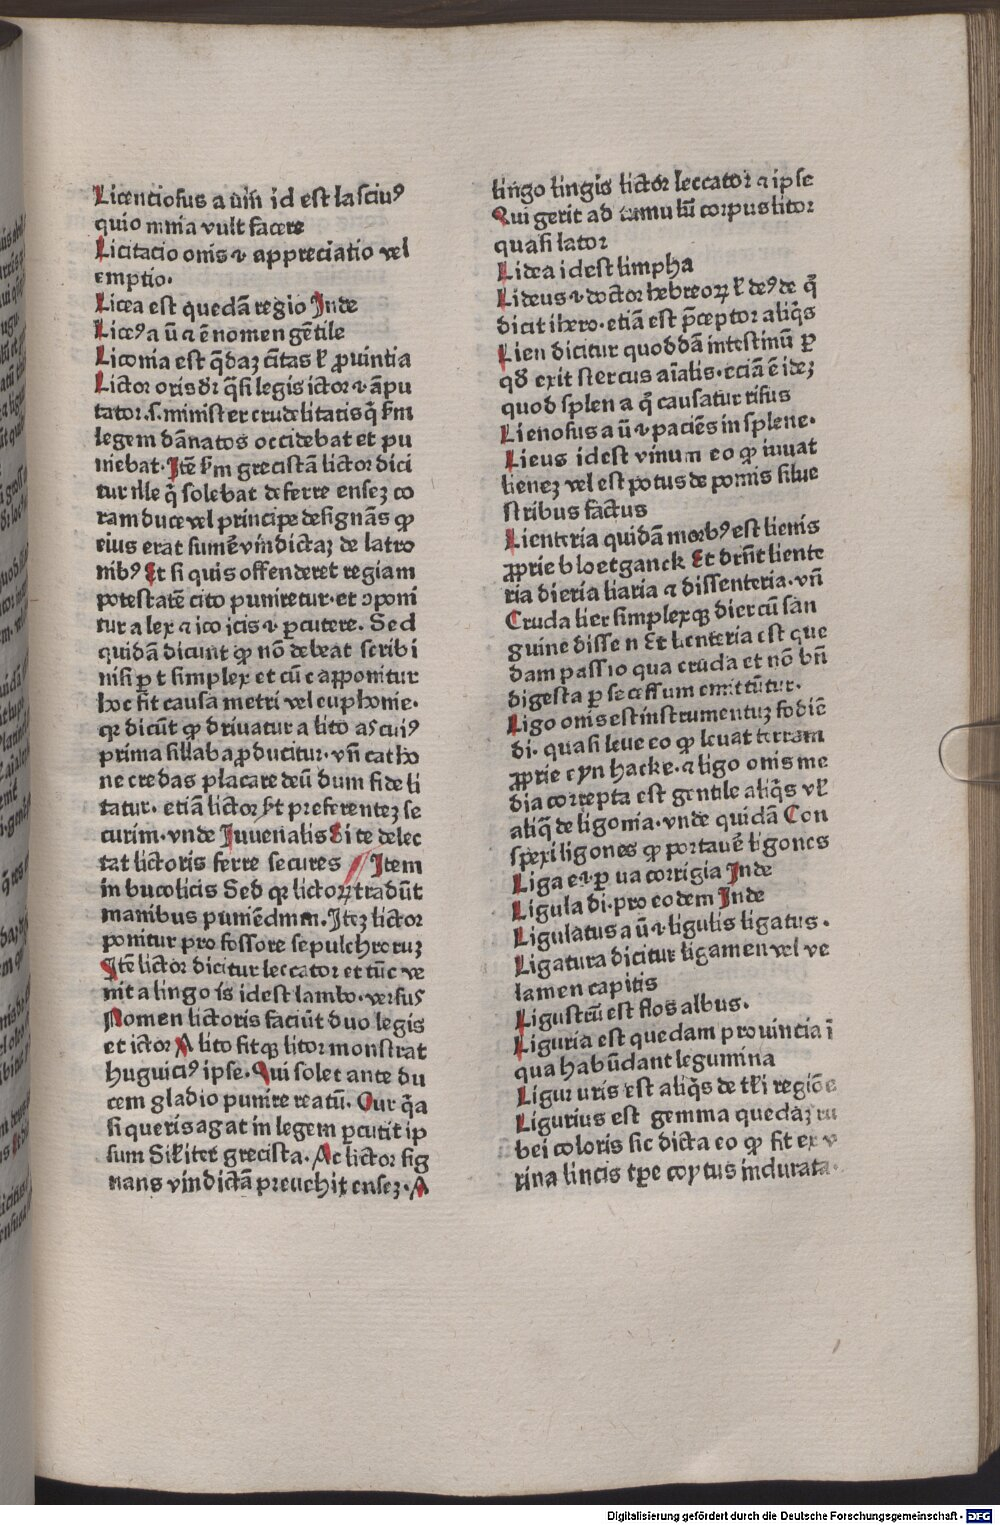 Licenciosus a ūm id est lasciuꝰ
quio mnia vult facere
Licitacio onis ⁊ appreciatio vel
emptio.
Licea est quedā regio Inde
Liceꝰ a ū ⁊ ē nomen gētile
Liconia est q̄daꝫ cītas ł ꝓuintia
Lictor oris dr̄ q̄si legis ictor ⁊ āpu
tator .s. minister crudelitatis q̄ sm̄
legem dānatos occidebat et pu
niebat. Itē sm̄ grecistā lictor dici
tur ille q̄ solebat deferre enseꝫ co
ram duce vel principe designās ꝙ
eius erat sumē vindictaꝫ de latro
nibꝰ Et si quis offenderet regiam
potestatē cito puniretur. et ꝯponi
tur a lex ⁊ ico icis ⁊ ꝑcutere. Sed
quidā dicunt ꝙ nō debeat scribi
nisi ꝑ t simplex et cū c apponitur
hoc fit causa metri vel euphonie.
qr dicūt ꝙ driuatur a lito as cuiꝰ
prima sillaba ꝓducitur. vn̄ catho
ne credas placare deū dum fide li
tatur. etiā lictor fit preferenteꝫ se
curim. vnde Iuuenalis Si te delec
tat lictoris ferre secures // Item
in bucolicis Sed qr lictorꝝ tradūt
manibus puniēdmm. Iteꝫ lictor
ponitur pro fossore sepulchroruꝫ
Itē lictor dicitur leccator et tūc ve
nit a lingo is id est lambo. versus
Nomen lictoris faciūt duo legis
et ictor A lito fitqꝫ litor monstrat
huguiciꝰ ipse. Qui solet ante du
cem gladio punire reatū. Cur q̄a
si queris agat in legem ꝑcutit ip
sum Siłiter grecista. Ac lictor sig
nans vindictā preuehit enseꝫ. A
lingo lingis lictor leccator ⁊ ipse
Qui gerit ad tumulū corpus litor
quasi lator
Lidea id est limpha
Lideus ⁊ doctor hebreoꝝ ł deꝰ de q̄
dicit ihero. etiā est p̄ceptor aliq̄s
Lien dicitur quoddā intestinū ꝑ
qd̄ exit stercus aīalis. eciā ē ideꝫ
quod splen a q̄ causatur risus
Lienosus a ū ⁊ paciēs in splene.
Lieus id est vinum eo ꝙ iuuat
lieneꝫ vel est potus de pomis silue
stribus factus
Lienteria quidā morbꝰ est lienis
ꝓprie bloetganck Et drn̄t liente
ria dieria liaria ⁊ dissenteria. vn̄
Cruda lier simplexqꝫ dier cū san
guine dissen Et lienteria est que
dam passio qua cruda et nō bn̄
digesta ꝑ secessum emittūtur.
Ligo onis est instrumentuꝫ fodiē
di. quasi leue eo ꝙ leuat terram
ꝓprie eyn hacke. ⁊ ligo onis me
dia correpta est gentile aliq̄s vł
aliq̄ de ligonia. vnde quidā Con
spexi ligones ꝙ portauē ligones
Liga e ⁊ ꝑua corrigia Inde
Ligula di. pro eodem Inde
Ligulatus a ū ⁊ ligulis ligatus.
Ligatura dicitur ligamen vel ve
lamen capitis
Ligustrū est flos albus.
Liguria est quedam prouincia ī
qua habūdant legumina
Ligur uris est aliq̄s de tłi regiōe
Ligurius est gemma quedaꝫ ru
bei coloris sic dicta eo ꝙ fit ex v
rina lincis tꝑe coytus indurata.
Digitalisierung gefördert durch die Deutsche Forschungsgemeinschaft - DFG